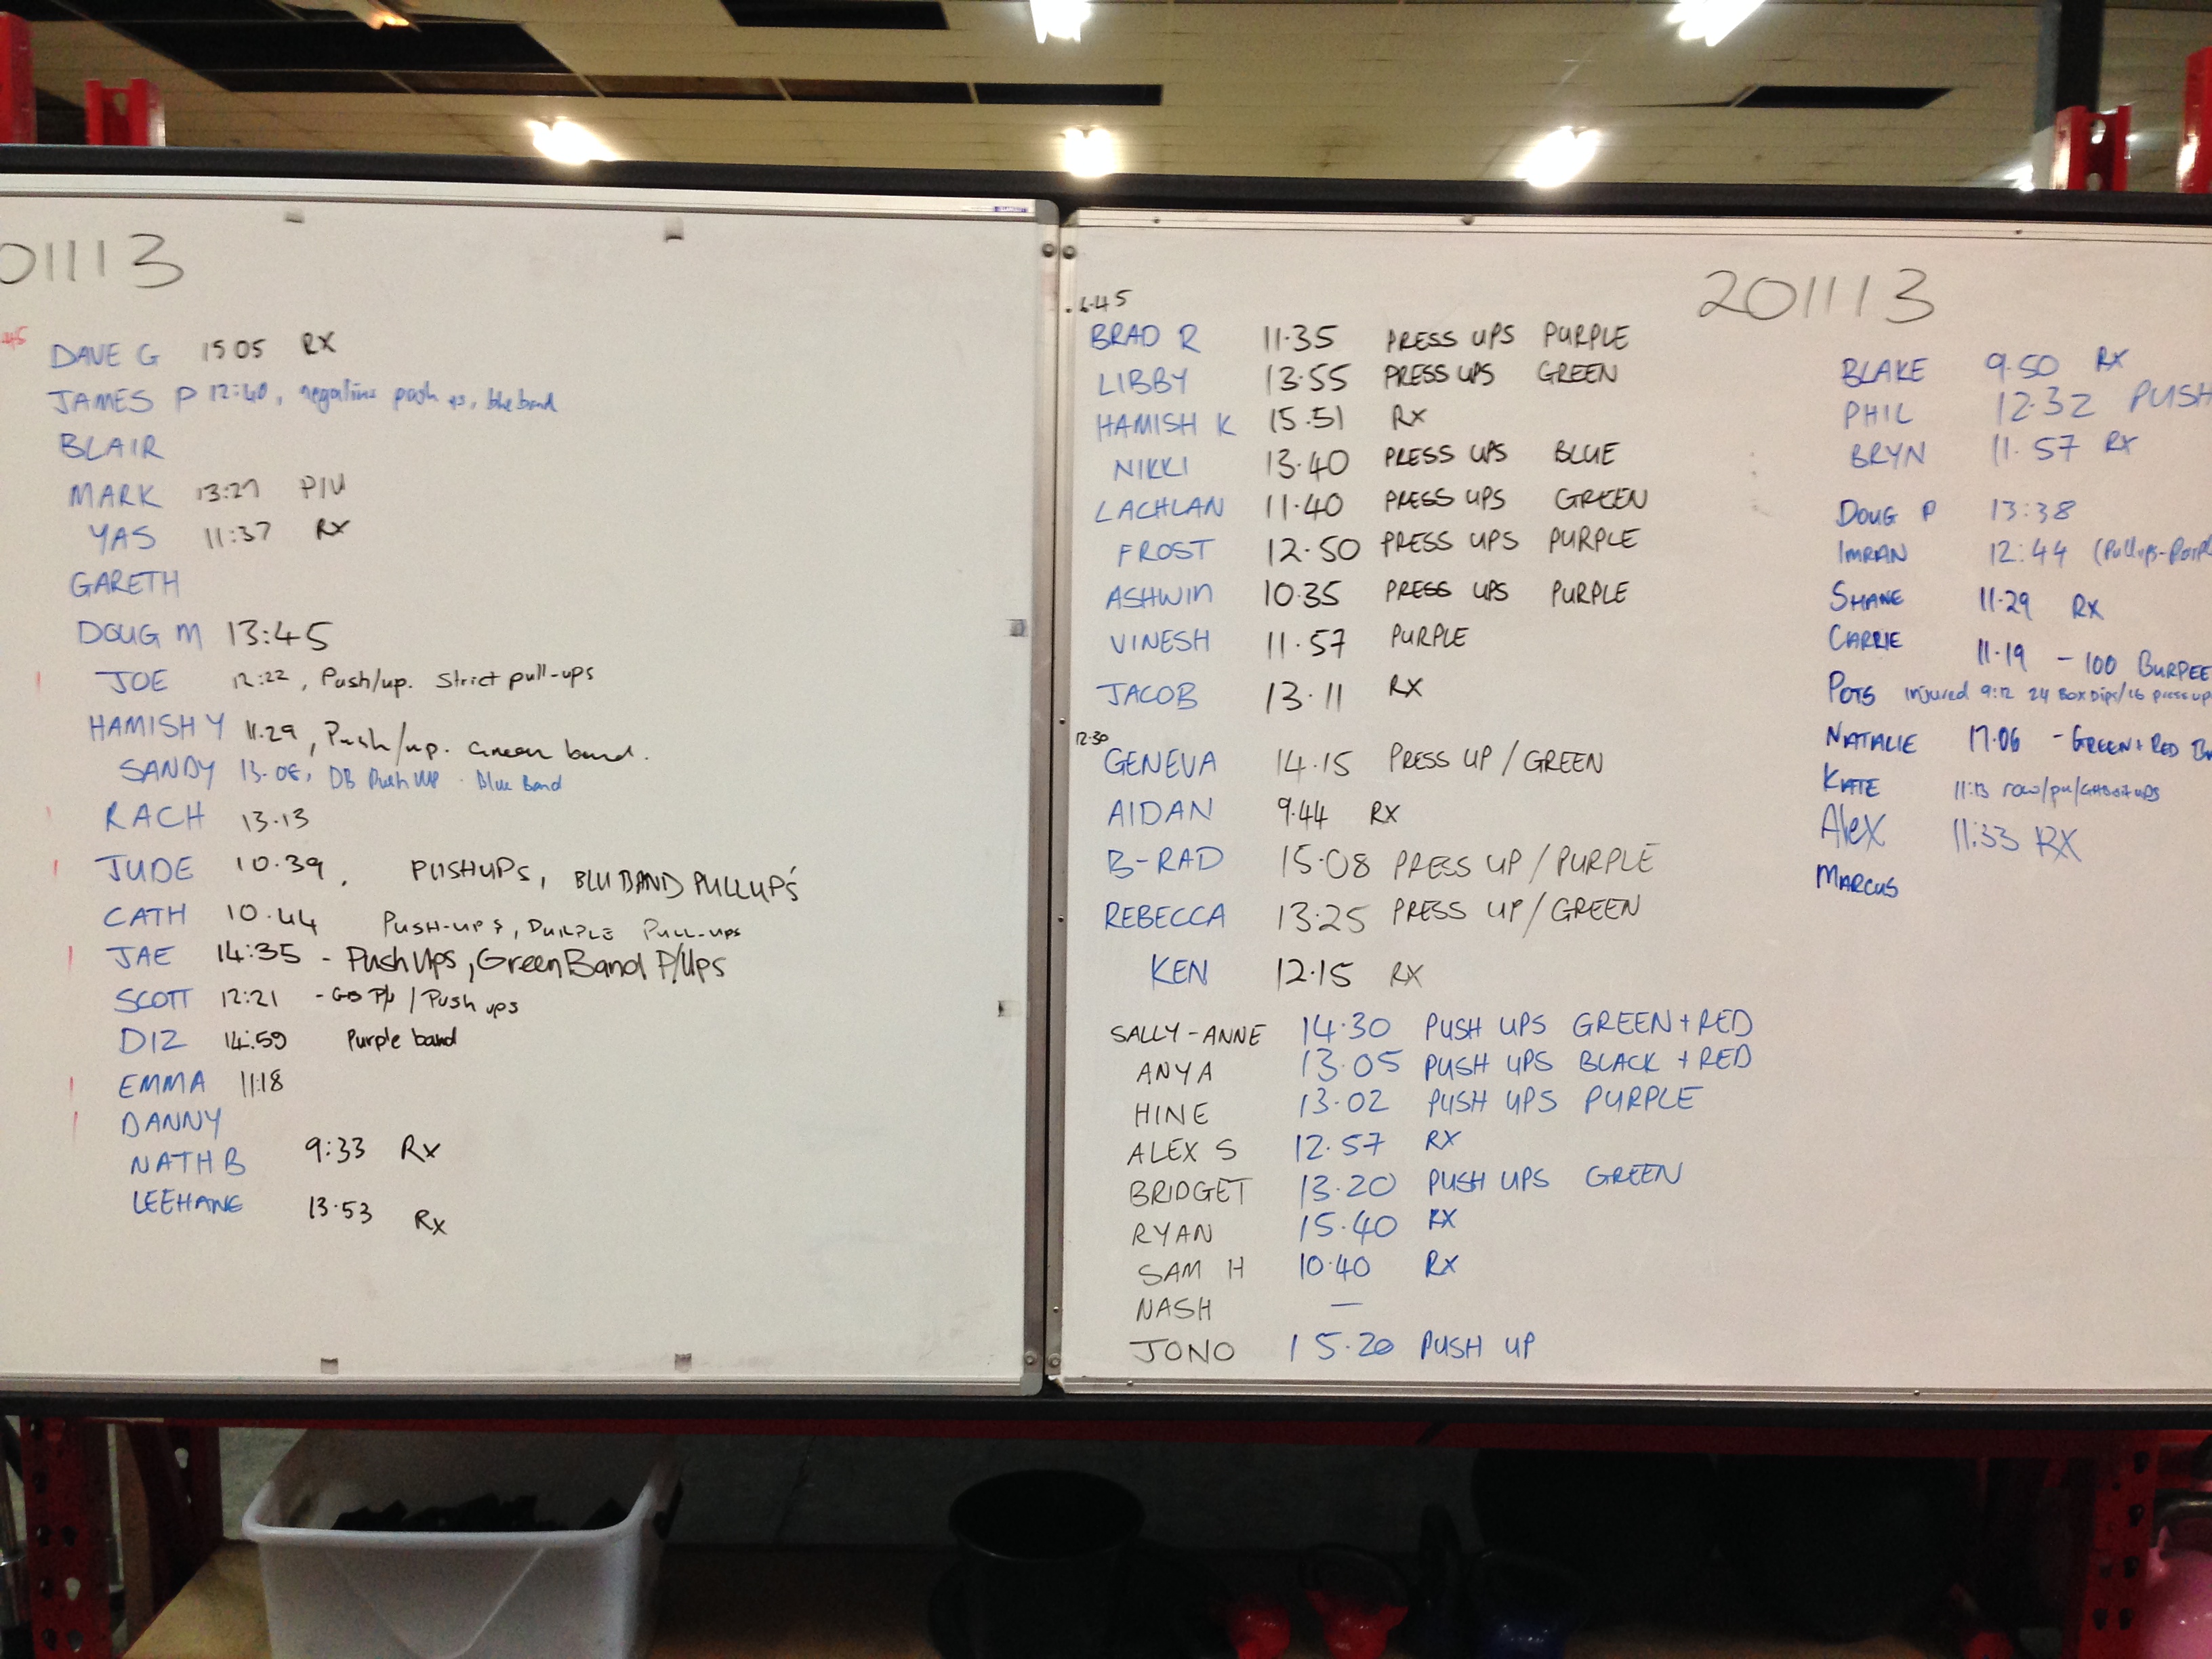 01113
DAVE G 15 05 RX
JAMES P 12:40, negatives push ups, blue band
BLAIR
MARK 13:27 P/U
YAS 11:37 RX
GARETH
DOUG M 13:45
JOE 12:22, Push/up. Strict pull-ups
HAMISH Y 11.29, Push/up. Green band.
SANDY 13.08, DB Push UP. Blue Band
RACH 13.13
JUDE 10.39, PUSHUPS, BLU BAND PULLUPS
CATH 10.44 PUSH-UPS, PURPLE PULL-UPS
JAE 14:35 - Push Ups, Green Band P/Ups
SCOTT 12:21 - GB P/U / Push ups
DIZ 14:59 Purple band
EMMA 11:18
DANNY
NATH B 9:33 Rx
LEEHANE 13.53 Rx
6.45
BRAD R 11.35 PRESS UPS PURPLE
LIBBY 13.55 PRESS UPS GREEN
HAMISH K 15.51 RX
NIKKI 13.40 PRESS UPS BLUE
LACHLAN 11.40 PRESS UPS GREEN
FROST 12.50 PRESS UPS PURPLE
ASHWIN 10.35 PRESS UPS PURPLE
VINESH 11.57 PURPLE
JACOB 13.11 RX
12.30
GENEVA 14.15 PRESS UP / GREEN
AIDAN 9.44 RX
B-RAD 15.08 PRESS UP / PURPLE
REBECCA 13.25 PRESS UP / GREEN
KEN 12.15 RX
SALLY-ANNE 14.30 PUSH UPS GREEN + RED
ANYA 13.05 PUSH UPS BLACK + RED
HINE 13.02 PUSH UPS PURPLE
ALEX S 12.57 RX
BRIDGET 13.20 PUSH UPS GREEN
RYAN 15.40 RX
SAM H 10.40 RX
NASH —
JONO 15.20 PUSH UP
201113
BLAKE 9.50 RX
PHIL 12.32 PUSH
BRYN 11.57 RX
DOUG P 13:38
IMRAN 12:44 (Pullups-Purpl
SHANE 11.29 RX
CARRIE 11.19 - 100 BURPEE
POTS Injured 9:12 24 Box Dips/16 press up
NATALIE 17.06 - GREEN + RED
KATE 11:13 row/pu/
Alex 11:33 RX
MARCUS